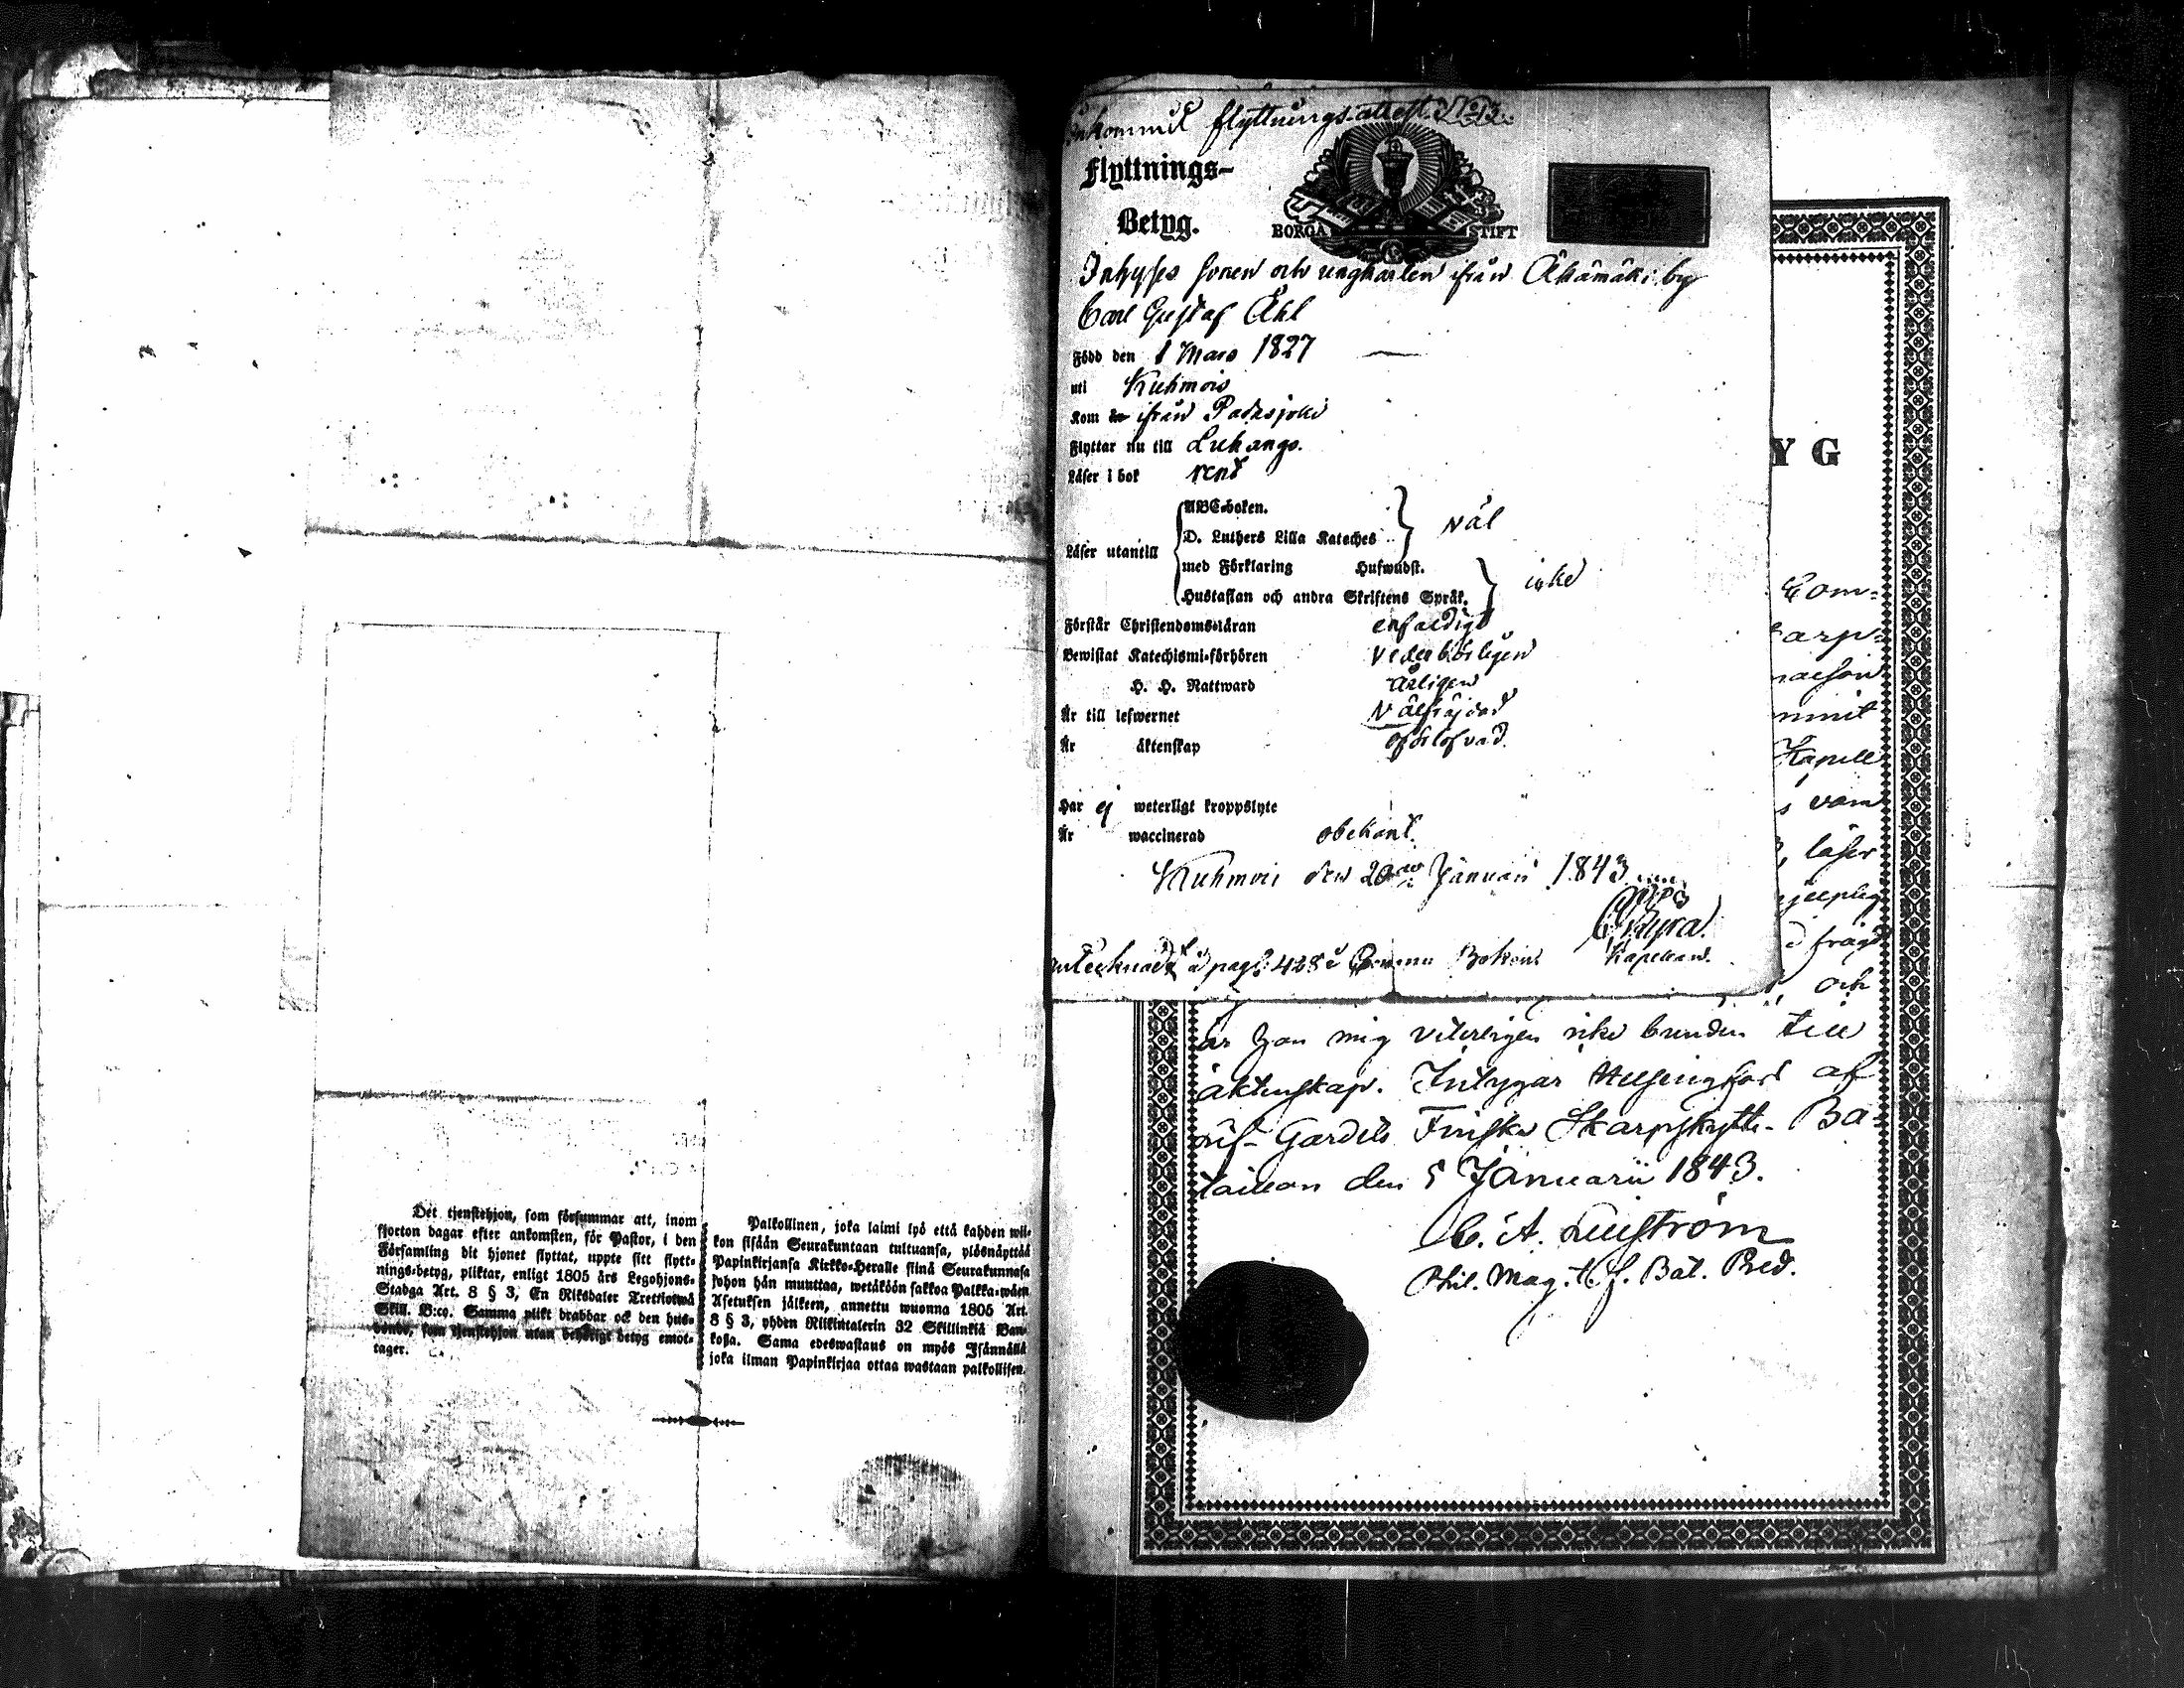 Det tjenstehjon, som försummar att, inom
fjorton dagar efter ankomsten, för Pastor, i den
Församling dit hjonet flyttat, uppte sitt flytt-
nings-betyg, pliktar, enligt 1805 års Legohjons-
Stadga Art. 8 § 3, En Riksdaler Trettiotwå
Skill. B:co. Samma plikt drabbar ock den hus-
bonde, som tjenstehjon utan behörigt betyg emot-
tager.
Palkollinen, joka laimi lyö että kahden wii-
kon sisään Seurakuntaan tultuansa, ylösnäyttää
Papinkirjansa Kirkko-Heralle siinä Seurakunnasa
johon hän muuttaa, wetäköön sakkoa Palkka-wäen
Asetuksen jälkeen, annettu wuonna 1805 Art.
8 § 3, yhden Riikintalerin 32 Skillinkiä Ban-
koßa. Sama edeswastaus on myös Isännällä
joka ilman Papinkirjaa ottaa wastaan palkollisen.
Inkommit flyttnings-attest
Flyttnings-
Betyg.
BORGÅ STIFT
Inhyses sonen och ungkarlen ifrån Äkämäki by
Carl Gustaf Åhl
Född den 1 Mars 1827
uti Kuhmois
Kom ifrån Padasjoki
Flyttar nu till Luhango.
Läser i bok rent
Läser utantill
ABC-boken.
D. Luthers Lilla Kateches
väl
med Förklaring Hufwudst.
Hustaflan och andra Skriftens Språk.
icke
Förstår Christendoms-läran enfaldigt
Bewistat Katechismi-förhören vederbörligen
H. H. Nattward årligen
Är till lefwernet välfräjdad
Är äktenskap oförlofvad.
Har ej weterligt kroppslyte
Är waccinerad obekant.
Kuhmois den 20 Januari 1843
Kapellan.
antecknadt å pag. 428 i Bokens
YG
Com-
arp-
minit
Kapell
s vam
, läser
och
är han mig veterligen icke bunden till
äktenskap. Intygar Helsingfors af
Gardets Finska Skarpskytte-Ba-
taillon den 5 Januarii 1843.
C. A.
Phil. Mag. Bat. Pred.